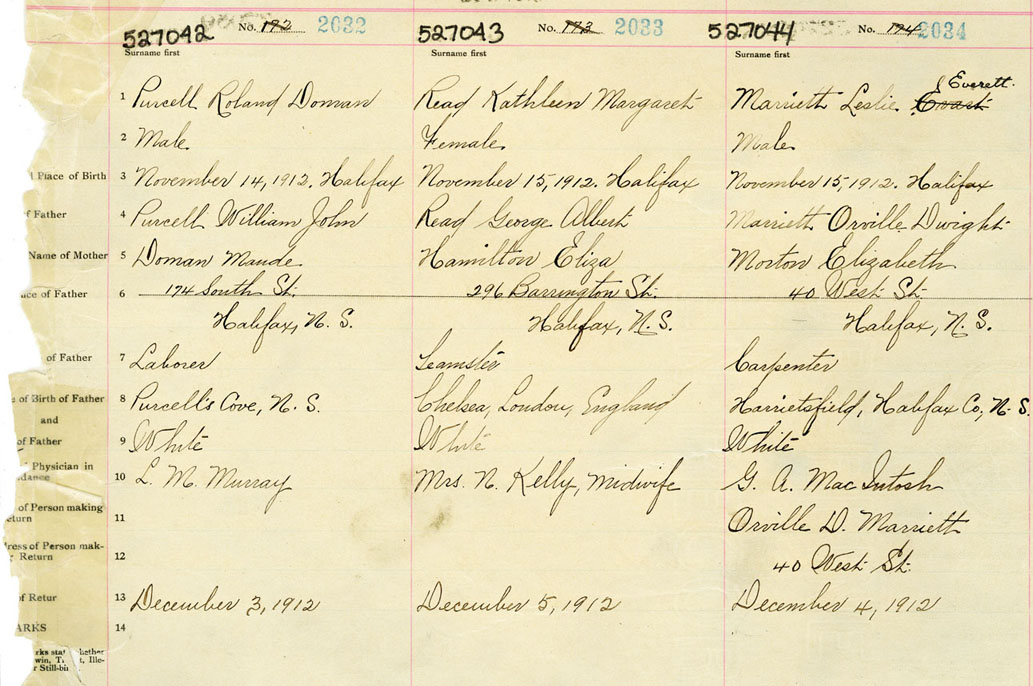 527042 No. 192 2032 527043 No. 193 2033 527044 No. 194 2034
Surname first Surname first Surname first
Everett.
1 Purcell Roland Doman Read Kathleen Margaret Marriett Leslie
2 Male Female Male
Place of Birth 3 November 14, 1912. Halifax November 15, 1912. Halifax November 15, 1912. Halifax
of Father 4 Purcell William John Read George Albert Marriett Orville Dwight
Name of Mother 5 Doman Maude Hamilton Eliza Morton Elizabeth
ce of Father 6 174 South St. 296 Barrington St. 40 West St.
Halifax, N.S. Halifax, N.S. Halifax, N.S.
of Father 7 Laborer Teamster Carpenter
e of Birth of Father 8 Purcell's Cove, N.S. Chelsea, London, England Harrietsfield, Halifax Co, N.S.
and
of Father 9 White White White
Physician in
dance 10 L. M. Murray Mrs. N. Kelly, midwife G. A. MacIntosh
of Person making
eturn 11 Orville D. Marriett
dress of Person mak-
Return 12 40 West St.
of Retur 13 December 3, 1912 December 5, 1912 December 4, 1912
ARKS 14
rks stat hether
win, T t, Ille-
r Still-bi